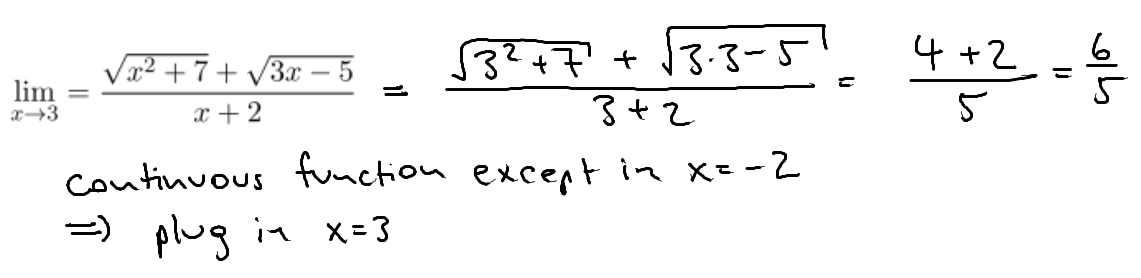 lim x→3 = (√(x² + 7) + √(3x − 5)) / (x + 2) = (√(3² + 7) + √(3·3 − 5)) / (3 + 2) = (4 + 2) / 5 = 6/5
continuous function except in x = −2
⇒ plug in x = 3